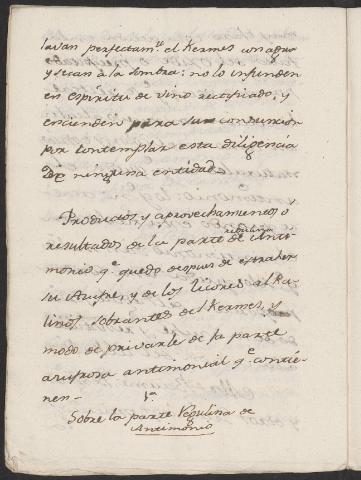 lavan perfectam.te el Kermes con agua
y secan à la sombra: no lo infunden
en espiritu de vino rectificado, y
encienden para su consuncion
por contemplar esta diligencia
De ninguna entidad.
Productos y aprovechamientos ó
resultados de la parte regulina de Anti-
monio q.e quedo despues de extraher
su Azufre, y de los licores alka-
linos sobrantes del Kermes, y
modo de privarle de la parte
azufrosa antimonial q.e contie-
nen-
1.a
Sobre la parte Regulina de
Antimonio